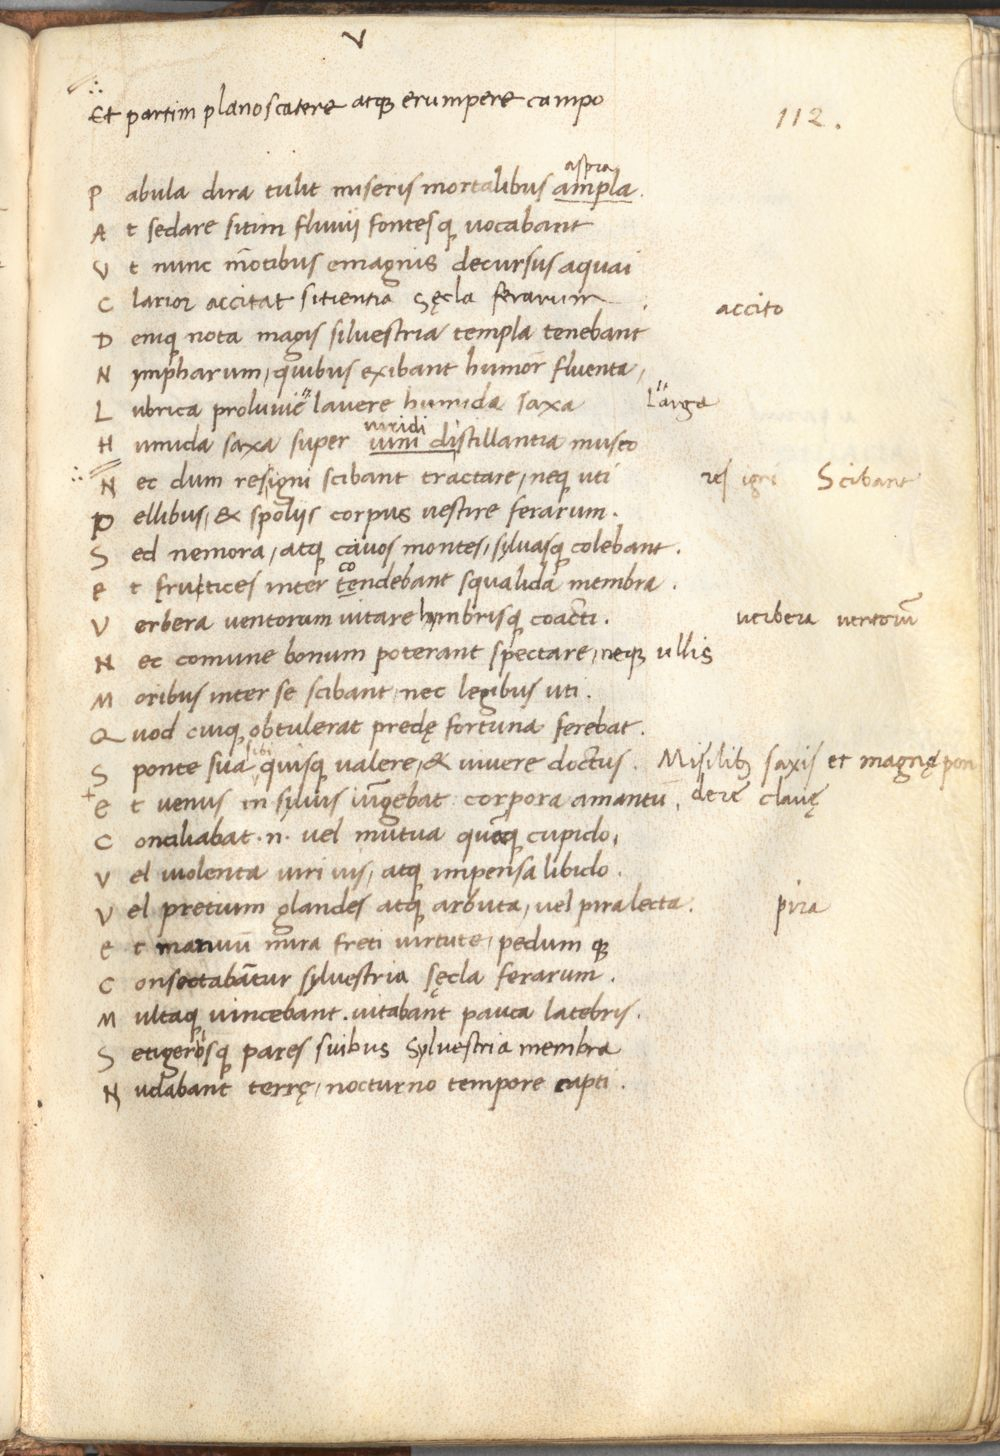 V
Et partim plano scatere atq; erumpere campo
112.
aspra
P abula dira tulit miseris mortalibus ampla.
A t sedare sitim fluuij fontesq; uocabant
V t nunc mo̅tibus emagnis decursus aquai
C larior accitat sitientia sęcla ferarum accito
D eniq; nota magis silvestria templa tenebant
N ympharum, quibus exibant humor̅ fluenta,
L ubrica proluuie lavere humida saxa Large
uiridi
H umida saxa super uiui distillantia musco
N ec dum resigni scibant tractare, neq; uti res igni Scibant
P ellibus, & spolijs corpus vestire ferarum.
S ed nemora, atq; cavos montes, sylvasq; colebant.
co
e t fructices inter tendebant squalida membra.
V erbera ventorum vitare hymbrisq; coacti. verbera ventoru̅
N ec comune bonum poterant spectare, neq; ullis
M oribus inter se scibant nec legibus uti.
Q uod cuiq; obtulerat predę fortuna ferebat.
sibi
S ponte sua quisq; valere, & vivere doctus. Misilib; saxis et magnę pon
e t venus in sylvis iu̅gebat corpora amantu̅, dere clavę
C onciliabat .n. vel mutua quēq; cupido,
V el violenta viri vis, atq; impensa libido.
V el pretium glandes atq; arbuta, vel pira lecta. pira
e t manuu̅ mira freti virtute, pedum q;
C onsectaba̅tur sylvestria sęcla ferarum.
M ultaq; vincebant. vitabant pauca latebris.
S etigerisq; pares suibus Sylvestria membra
N udabant terrę, nocturno tempore capti.